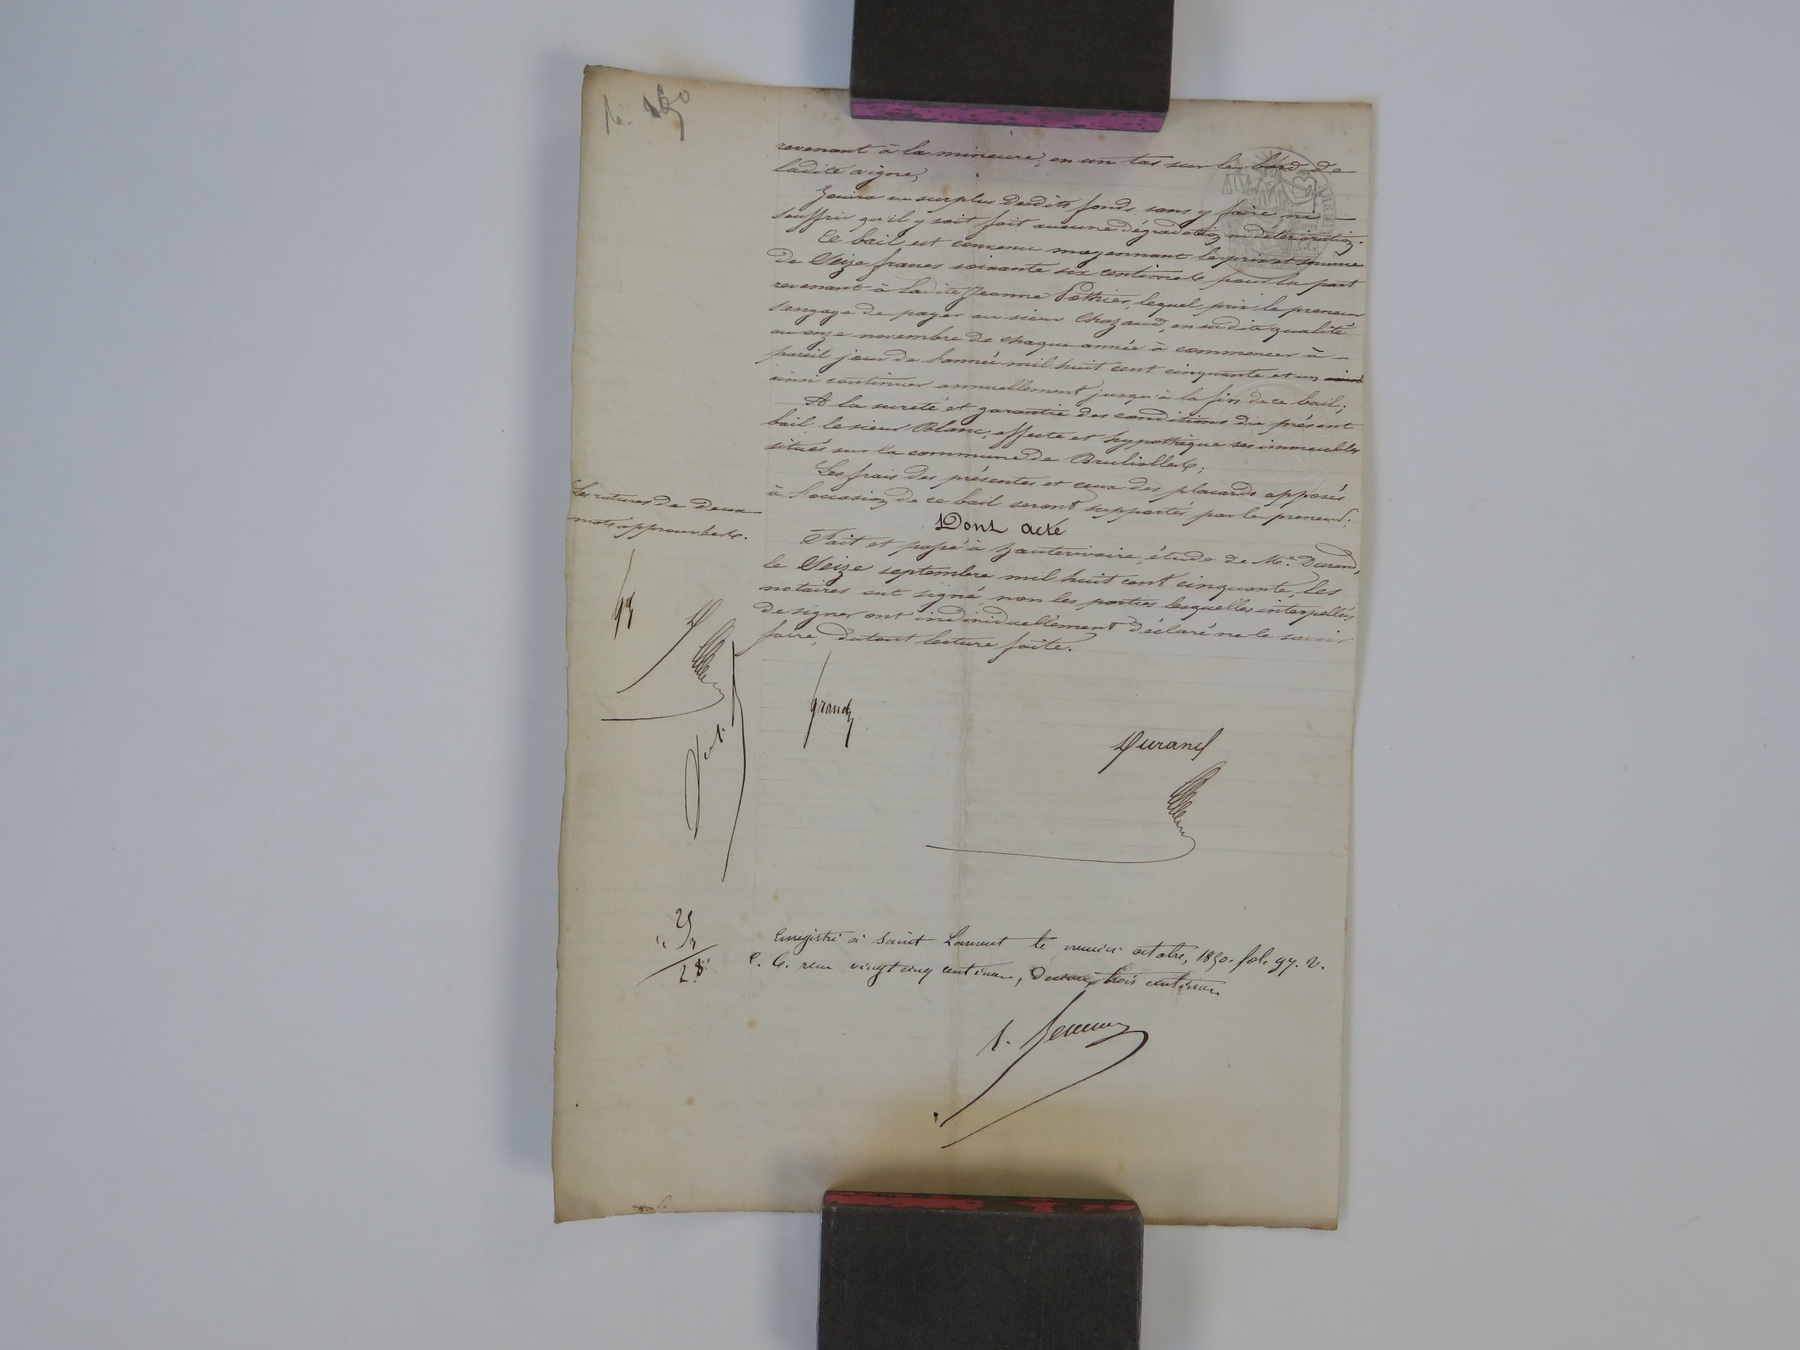 revenant à la mineure, en un tas sur le bord de
ladite vigne,
Jouira au surplus desdits fonds, sans y faire ni
souffrir qu'il y soit fait aucune dégradation ni détérioration.
Ce bail est convenu moyennant le prix et somme
de Seize francs soixante six centimes pour la part
revenant à ladite Jeanne Pothier, lequel prix le preneur
s'engage de payer au sieur Chazaud, en sa dite qualité
au onze novembre de chaque année à commencer à
pareil jour de l'année mil huit cent cinquante et un
ainsi continuer annuellement jusqu'à la fin de ce bail;
A la sureté et garantie des conditions du présent
bail, le sieur Blanc, affecte et hypothèque ses immeubles
situés sur la commune de Brulioles;
Les frais des présentes et ceux des placards apposés
à l'occasion de ce bail seront supportés par le preneur;
Dont acte
Fait et passé à hauterivoire, étude de Me. Durand,
le Seize septembre mil huit cent cinquante, les
notaires ont signé non les parties lesquelles interpellées
de signer ont individuellement déclaré ne le savoir
faire, dutout lecture faite.
Les ratures de deux
mots approuvées.
grand
Durand
25
3
28
Enregistré à Saint Laurent le premier octobre, 1850. fol. 97. v.
c. 6. reçu vingt cinq centimes, décime, trois centimes.